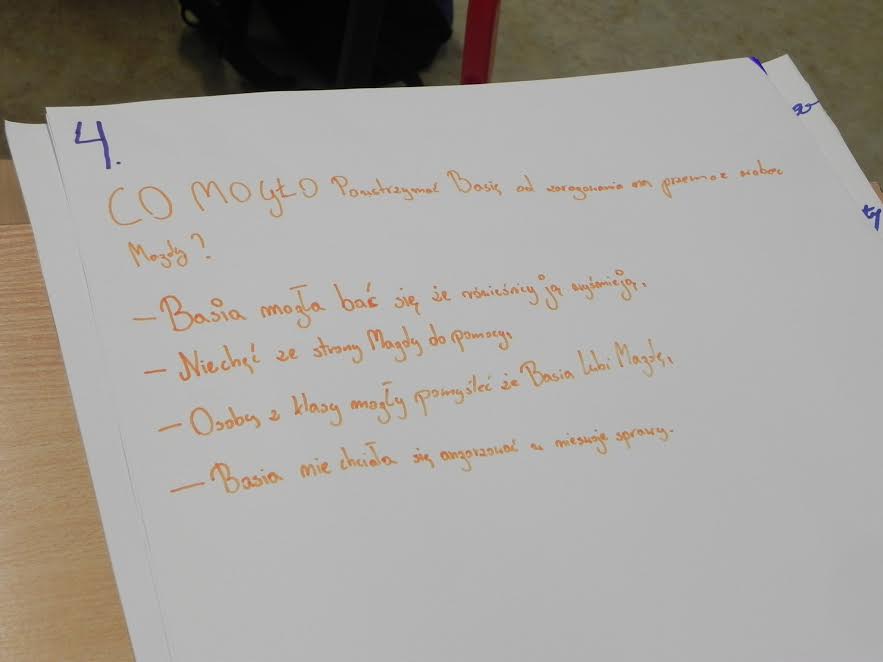 4.
CO MOGŁO Powstrzymać Basię od zaregowania na przemoc wobec
Magdy?
– Basia mogła bać się że rówieśnicy ją wyśmieją.
– Niechęć ze strony Magdy do pomocy.
– Osoby z klasy mogły pomyśleć że Basia lubi Magdę.
– Basia nie chciała się angarzować w nieswoje sprawy.